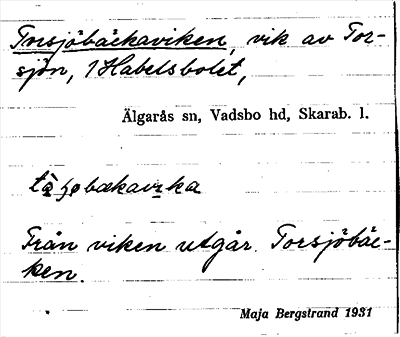 Torsjöbäckaviken, vik av Tor-
sjön, 1 Habetsbolet,
Älgarås sn, Vadsbo hd, Skarab. l.
Från viken utgår Torsjöbäc-
ken.
Maja Bergstrand 1931